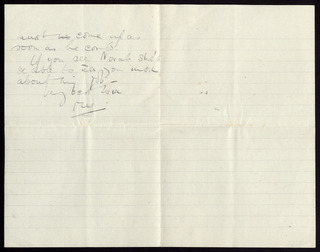 must come up as
soon as he could.
If you see Norah she'd
be able to tell you more
about
my best love